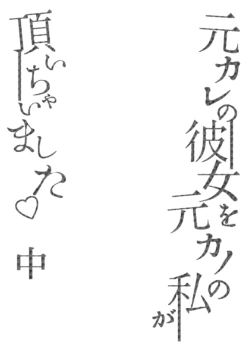 元カレの彼女を元カノの私が
頂いちゃいました♡
中